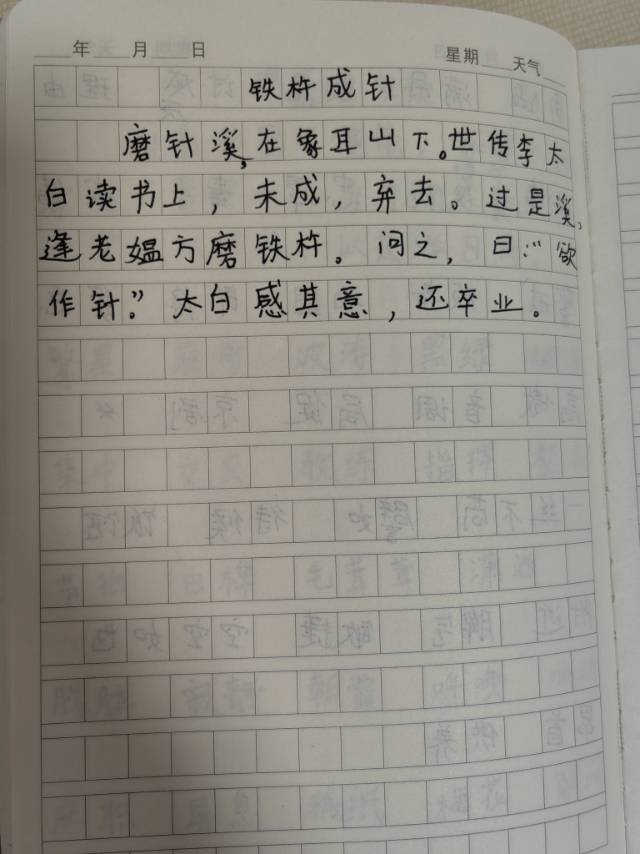 年 月 日 星期 天气
铁杵成针
磨针溪,在象耳山下。世传李太
白读书上，未成，弃去。过是溪,
逢老媪方磨铁杵。问之，曰:“欲
作针。”太白感其意，还卒业。